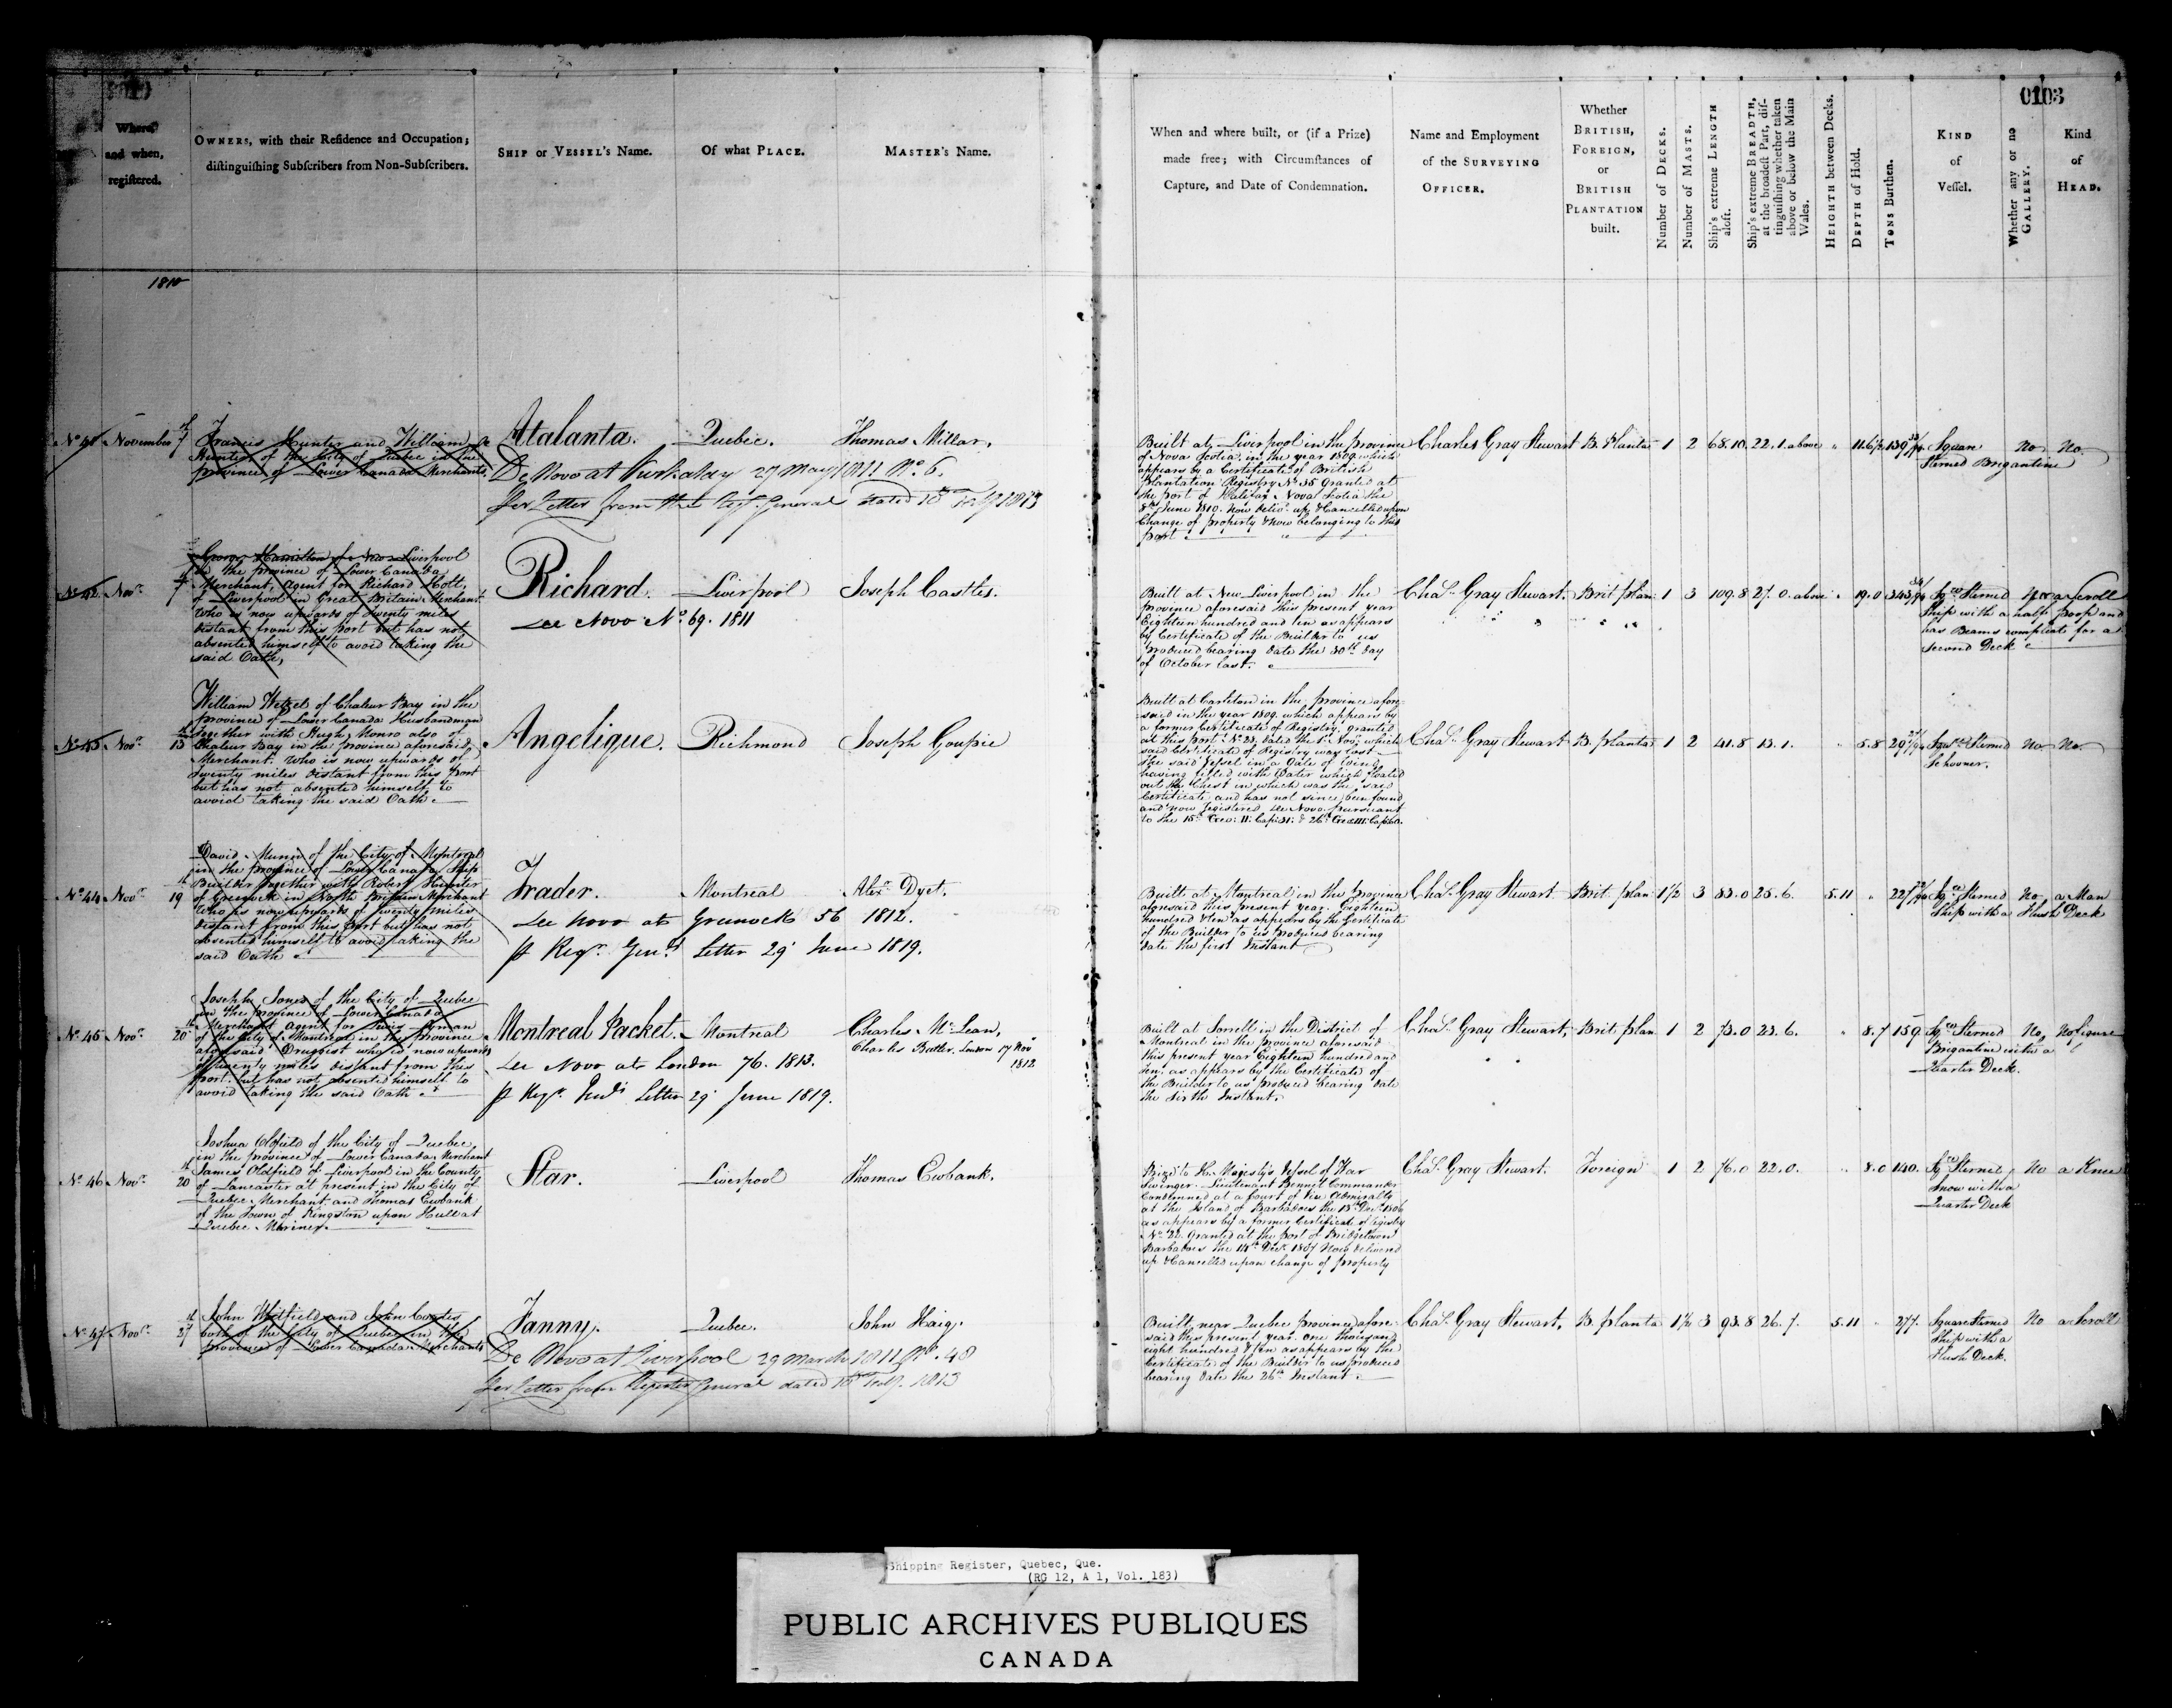 0103
Where and when, registered.
OWNERS, with their Residence and Occupation; distinguishing Subscribers from Non-Subscribers.
SHIP or VESSEL's Name.
Of what PLACE.
MASTER's Name.
When and where built, or (if a Prize) made free; with Circumstances of Capture, and Date of Condemnation.
Name and Employment of the SURVEYING OFFICER.
Whether BRITISH, FOREIGN, or BRITISH PLANTATION built.
Number of DECKS.
Number of MASTS.
Ship's extreme LENGTH aloft.
Ship's extreme BREADTH, at the broadest Part, distinguishing whether taken above or below the Main Wales.
HEIGHTH between Decks.
DEPTH of Hold.
TONS Burthen.
KIND of Vessel.
Whether any or no GALLERY.
Kind of HEAD.
1810
November 7th
Francis Hunter and William
Hunter of the City of Quebec in the
province of Lower Canada Merchants
Atalanta. Quebec. Thomas Millar.
De Novo at Kirkalday 27 May 1811 No. 6.
per Letter from the Regr. General dated 10th Feby 1813
Built at Liverpool in the province
of Nova Scotia, in the year 1809 which
appears by a Certificate of British
Plantation Registry No. 35 granted at
the port of Halifax Nova Scotia the
8th June 1810. Now deliv. up & Cancelled upon
Change of property & Now belonging to this
port
Charles Gray Stewart B. Planta 1 2 68.10. 22.1. above 11.6½ 139
Square
Sterned Brigantine
No No.
No. 42 Novr. 7
George Hamilton of New Liverpool
in the province of Lower Canada
Merchant, Agent for Richard Holt,
of Liverpool in Great Britain Merchant
Who is now upwards of twenty miles
distant from this port but has not
absented himself to avoid taking the
said Oath,
Richard. Liverpool Joseph Castles.
De Novo No. 69. 1811
Built at New Liverpool in the
province aforesaid this present year
Eighteen hundred and ten as appears
by Certificate of the Builder to us
produced bearing date the 30th day
of October last.
Chas. Gray Stewart. Brit plan 1 3 109.8 27.0. above 19.0 343
Sqre Sterned
Ship with a half poop and
has Beams complete for a
Second Deck
a Scroll
Novr. 13th
William Wetzel of Chaleur Bay in the
province of Lower Canada Husbandman
together with Hugh Monro also of
Chaleur Bay in the province aforesaid,
Merchant. Who is now upwards of
twenty miles distant from this port
but has not absented himself to
avoid taking the said Oath.
Angelique. Richmond Joseph Goupie
Built at Carleton in the province afore
said in the year 1809. which appears by
a former Certificate of Registry, granted
at this Port No. 23. dated the 1st Novr. which
said Certificate of Registry was lost
the said Vessel in a Gale of wind
having filled with Water which floated
out the Chest in which was the said
Certificate and has not since been found
and now registered De Novo pursuant
to the 15th Geo: II. Cap: 31. & 26th Geo: III. Cap: 60.
Chas. Gray Stewart B. planta 1 2 41.8 13.1. 5.8 29
Sqre Sterned
Schooner.
No No.
No. 44 Novr. 19th
David Munn of the City of Montreal
in the Province of Lower Canada Ship
Builder together with Robert Hunter
of Greenock in North Britain Merchant
Who is now upwards of twenty miles
distant from this Port but has not
absented himself to avoid taking the
said Oath
Trader. Montreal Alexr. Dyet.
De Novo at Greenock 56 1812.
pr Regr. Genls. Letter 29 June 1819.
Built at Montreal in the province
aforesaid this present year Eighteen
hundred & ten as appears by the Certificate
of the Builder to us produced bearing
date the first Instant
Chas. Gray Stewart Brit. plan 1½ 3 83.0 25.6. 5.11 227
Sqre Sterned
Ship with a Flush Deck
No a Man
No. 45 Novr. 20th
Joseph Jones of the City of Quebec
in the province of Lower Canada
Merchant Agent for Lewis Lyman
of the City of Montreal in the province
aforesaid Druggist who is now upwards
of twenty miles distant from this
port. but has not absented himself to
avoid taking the said Oath
Montreal Packet. Montreal Charles McLean,
Charles Butler. London 17 Nov 1812
De Novo at London 76. 1813.
pr Regr. Genls Letter 29 June 1819.
Built at Sorrell in the District of
Montreal in the Province aforesaid
this present year Eighteen hundred and
ten, as appears by the Certificate of
the Builder to us produced bearing date
the Sixth Instant.
Chas. Gray Stewart, Brit. plan 1 2 73.0 23.6. 8.7 159
Sqre Sterned
Brigantine with a
Quarter Deck.
No, No figure
No. 46 Novr. 20th
Joshua Oldfield of the City of Quebec
in the province of Lower Canada, Merchant
James Oldfield of Liverpool in the County
of Lancaster at present in the City of
Quebec Merchant and Thomas Ewbank
of the Town of Kingston upon Hull at
Quebec Mariner.
Star. Liverpool Thomas Ewbank.
Prize to H. Majesty's Vessel of War
Swinger. Lieutenant Bennet Commander
Condemned at a Court of Vice Admiralty
at the Island of Barbadoes the 13th Decr. 1806
as appears by a former Certificate of Registry
No. 22. Granted at the port of Bridgetown
Barbadoes the 14th Decr. 1807 Now delivered
up & Cancelled upon change of property
Chas. Gray Stewart. Foreign 1 2 76.0 22.0. 8.0 140.
Sqre Sterned
Snow with a
Quarter Deck
No a Knee
No. 47 Novr. 27th
John Mitfield and John Coates
both of the City of Quebec in the
province of Lower Canada Merchants
Fanny. Quebec. John Haig.
De Novo at Liverpool 29 March 1811 No. 48
per Letter from Register General dated 10th Feby. 1813
Built near Quebec province afore-
said this present year one thousand
eight hundred & ten as appears by the
Certificate of the Builder to us produced
bearing date the 26th Instant.
Chas. Gray Stewart, B. planta 1½ 3 93.8 26.7. 5.11 277.
Square Sterned
Ship with a
Flush Deck.
No a Scroll
Shipping Register, Quebec, Que.
(RG 12, A 1, Vol. 183)
PUBLIC ARCHIVES PUBLIQUES
CANADA